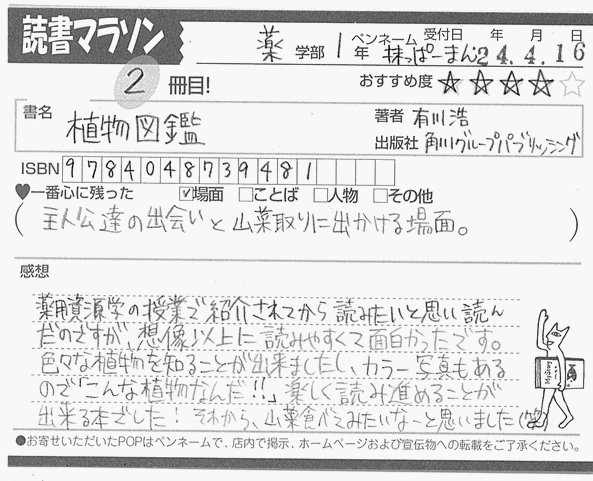 読書マラソン
薬 学部 1 年 ペンネーム 抹っぱーまん 受付日 年 月 日 24.4.16
2 冊目! おすすめ度 ★★★★☆
書名 植物図鑑
著者 有川浩
出版社 角川グループパブリッシング
ISBN 9784048739481
♥一番心に残った ☑場面 □ことば □人物 □その他
(主人公達の出会いと山菜取りに出かける場面。)
感想
薬用資源学の授業で紹介されてから読みたいと思い読ん
だのですが、想像以上に読みやすくて面白かったです。
色々な植物を知ることが出来ましたし、カラー写真もある
ので「こんな植物なんだ!!」楽しく読み進めることが
出来る本でした!それから、山菜食べてみたいなーと思いました(笑)
●お寄せいただいたPOPはペンネームで、店内で掲示、ホームページおよび宣伝物への転載をご了承ください。